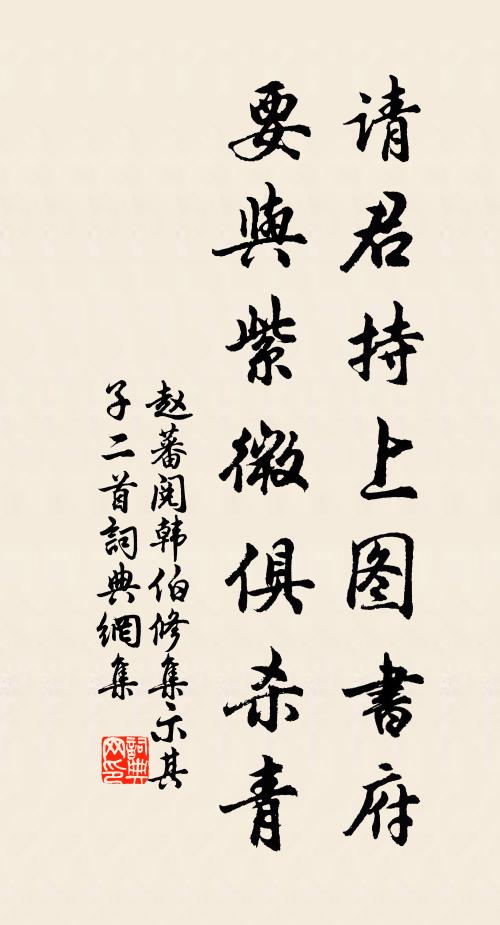 请君持上图書府
要與紫微俱杀青
赵蕃阅韩伯修集示其
子二首詞典網集
詞典
网印